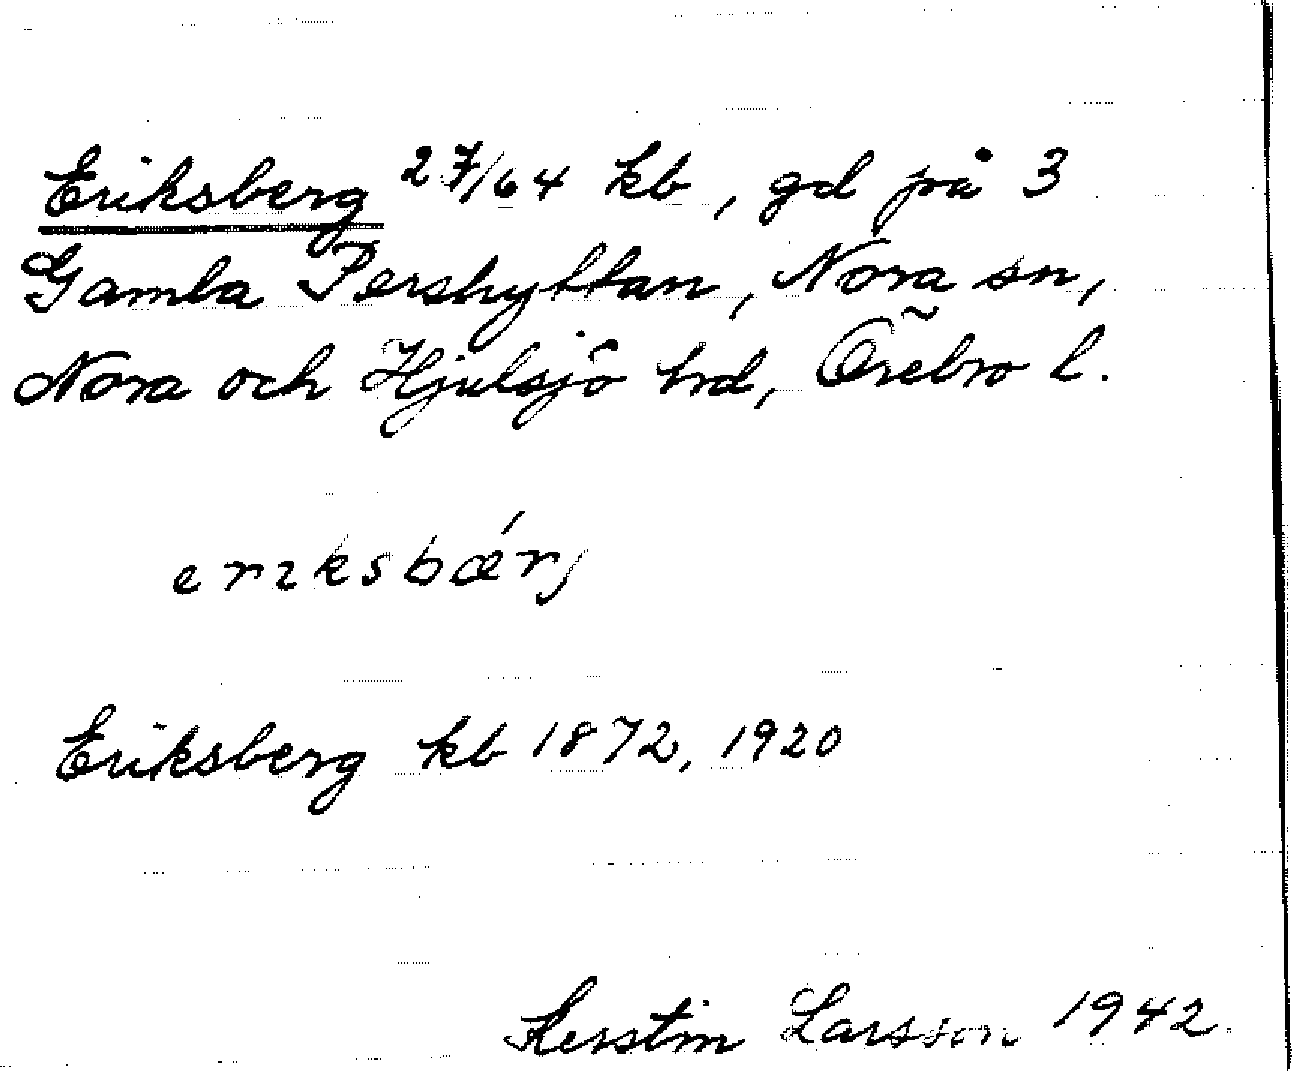 Eriksberg 27/64 kb, gd på 3
Gamla Pershyttan, Nora sn,
Nora och Hjulsjö hrd, Örebro l.
erıksbǽrj
Eriksberg kb 1872, 1920
Kerstin Larsson 1942